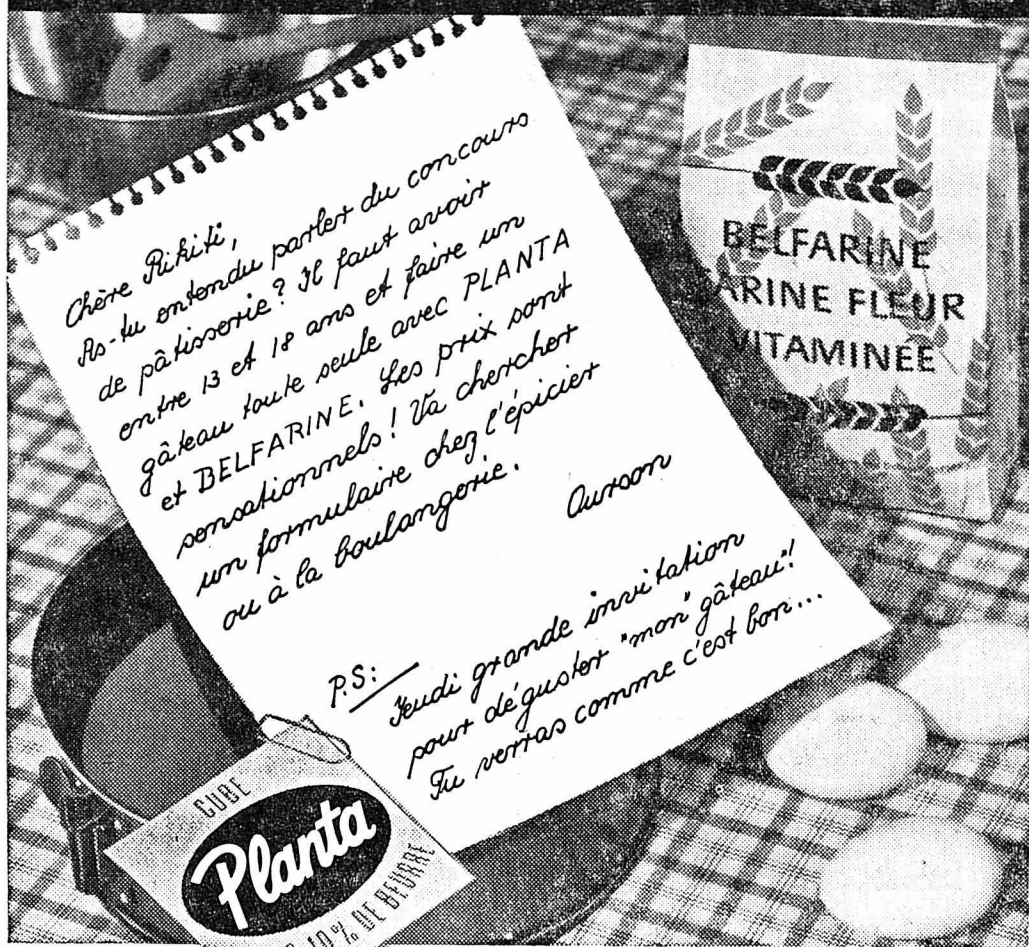 Chère Rikiti,
As-tu entendu parler du concours
de pâtisserie? Il faut avoir
entre 13 et 18 ans et faire un
gâteau toute seule avec PLANTA
et BELFARINE. Les prix sont
sensationnels! Va chercher
un formulaire chez l'épicier
ou à la boulangerie.
Ourson
P.S:
Jeudi grande invitation
pour déguster "mon" gâteau!
Tu verras comme c'est bon...
BELFARINE
FARINE FLEUR
VITAMINÉE
CUBE
Planta
10% DE BEURRE